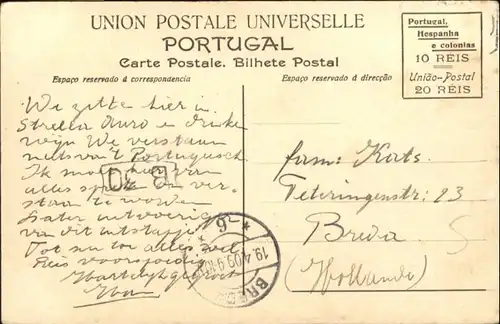 UNION POSTALE UNIVERSELLE
PORTUGAL
Carte Postale. Bilhete Postal
Portugal,
Hespanha
e colonias
10 RÉIS
União-Postal
20 RÉIS
Espaço reservado á correspondencia
Espaço reservado á direcção
We zitten hier in
Strella d'uro en drinken
wijn We verstaan
niets van 't Portugeesch
Ik moet hier van
alles om ver-
staan te worden
Later uitvoerig
van dit uitstapje
Tot nu toe alles wel
Reis voorspoedig
Hartelijk gegroet
fam: Kats.
Teteringenstr: 23
Breda
(Holland)
19.4.09
BREDA